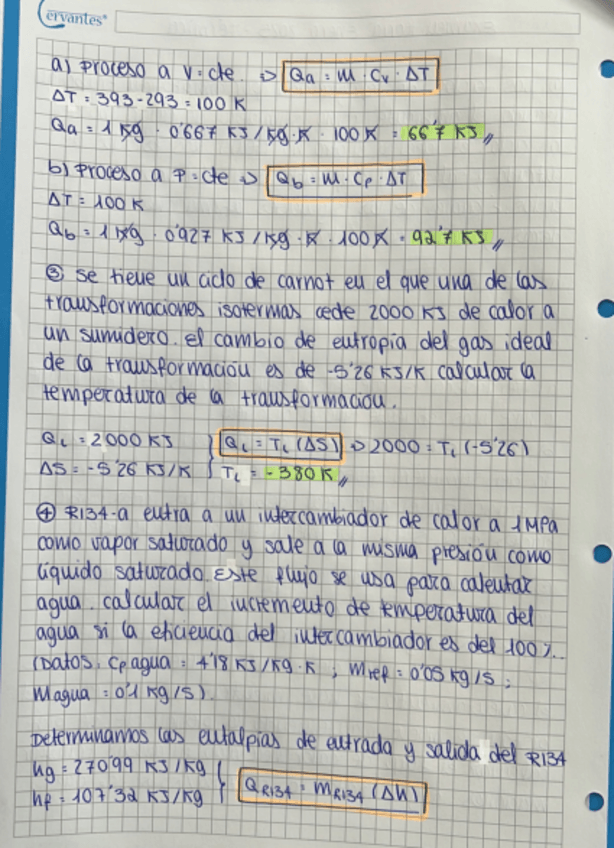 Cervantes®
a) Proceso a V=cte. => Qa = m · Cv · ΔT
ΔT = 393-293 = 100 K
Qa = 1 kg · 0'667 KJ/kg·K · 100 K = 66'7 KJ //
b) Proceso a P=cte => Qb = m · Cp · ΔT
ΔT = 100 K
Qb = 1 kg · 0'927 KJ/kg·K · 100 K = 92'7 KJ //
③ Se tiene un ciclo de carnot en el que una de las
transformaciones isotermas cede 2000 KJ de calor a
un sumidero. el cambio de entropia del gas ideal
de la transformación es de -5'26 KJ/K. calcular la
temperatura de la transformación.
QL = 2000 KJ } QL = TL (ΔS) => 2000 = TL (-5'26)
ΔS = -5'26 KJ/K } TL = -380 K //
④ R134-a entra a un intercambiador de calor a 1MPa
como vapor saturado y sale a la misma presión como
líquido saturado. Este flujo se usa para calentar
agua. calcular el incremento de temperatura del
agua si la eficiencia del intercambiador es del 100%.
(Datos: Cp agua = 4'18 KJ/Kg·K ; mref = 0'05 kg/s ;
magua = 0'1 kg/s).
Determinamos las entalpias de entrada y salida del R134
hg = 270'99 KJ/kg } QR134 = mR134 (Δh)
hf = 107'32 KJ/kg